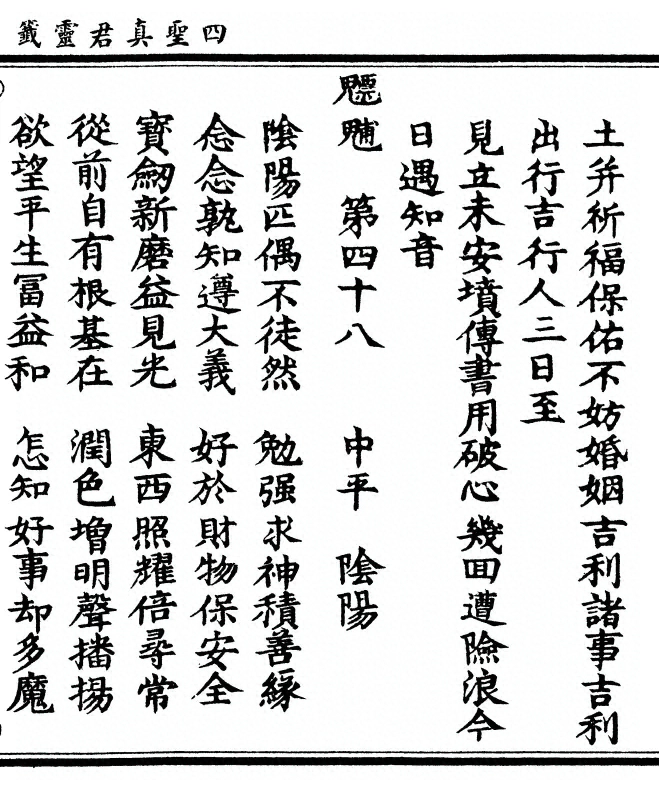 四聖真君靈籤
土并祈福保佑不妨婚姻吉利諸事吉利
出行吉行人三日至
見立未安墳傳書用破心幾回遭險浪今
日遇知音
魒魓 第四十八 中平 陰陽
陰陽匹偶不徒然 勉强求神積善緣
念念孰知遵大義 好於財物保安全
寳劒新磨益見光 東西照耀倍尋常
從前自有根基在 潤色増明聲播揚
欲望平生冨益和 怎知好事却多魔